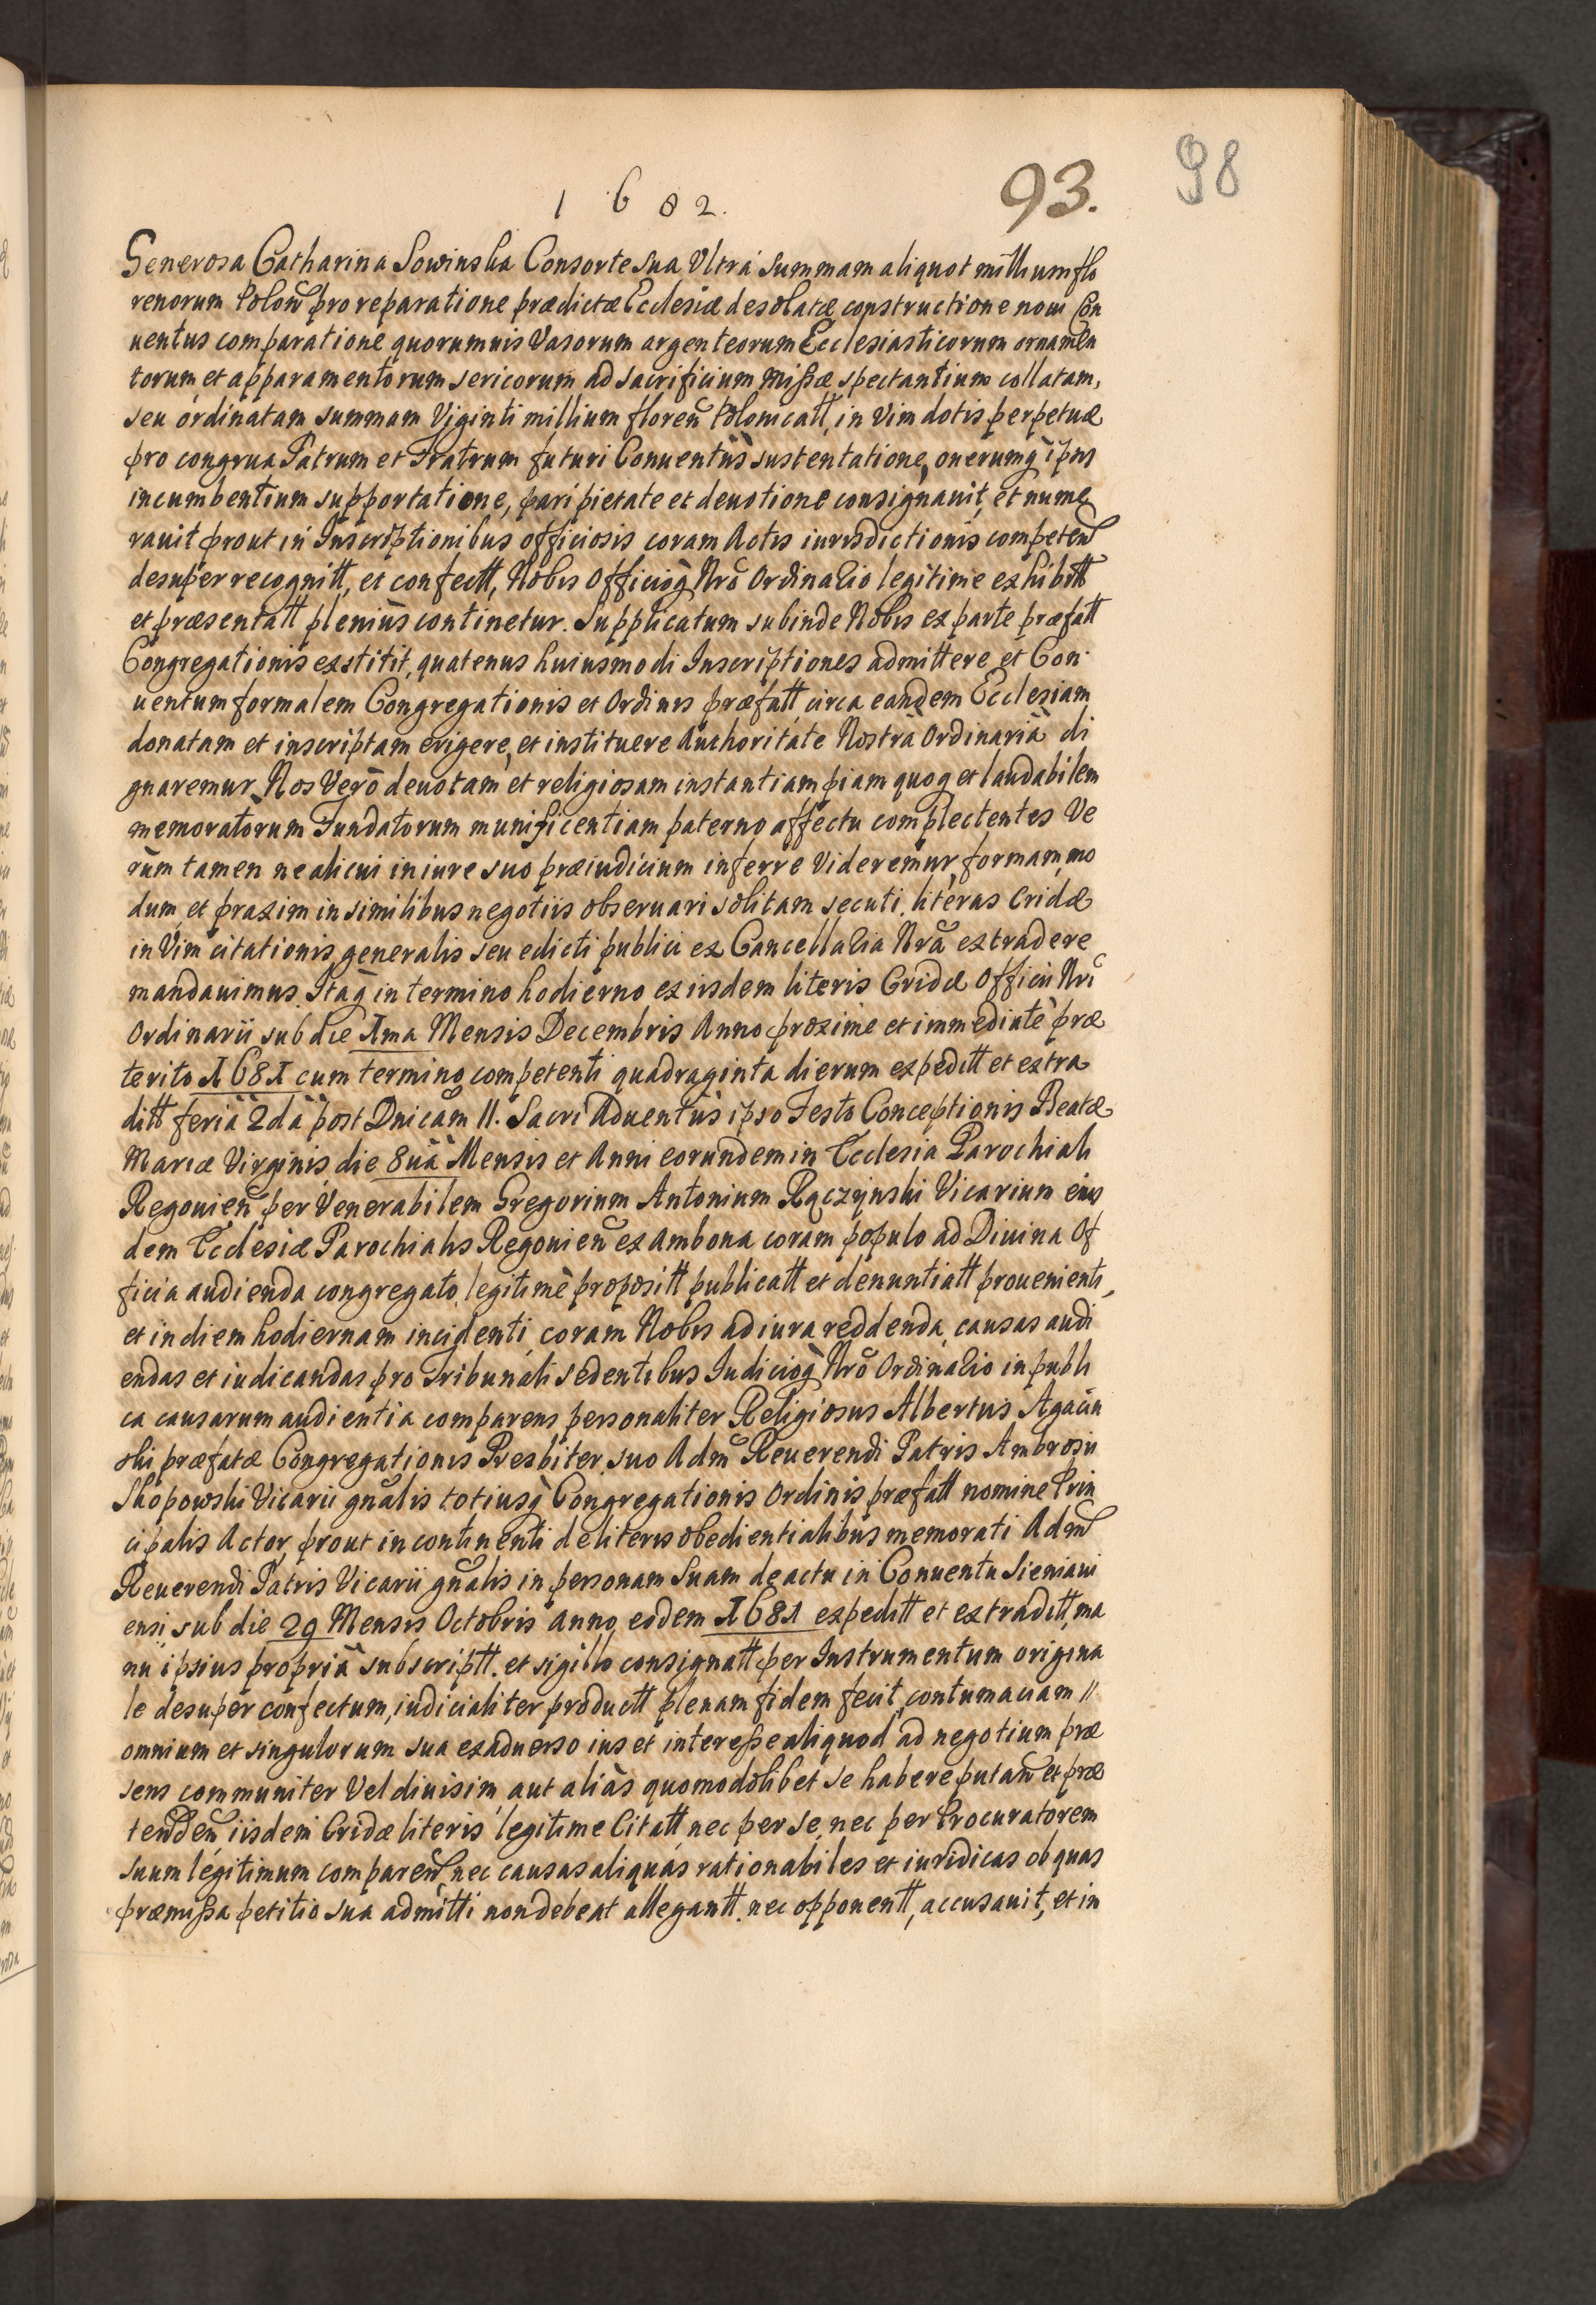 98
93.
1 6 8 2.
Generosa Catharina Sowinska Consorte sua Vltra summam aliquot millium flo
renorum Polon pro reparatione prædictæ Ecclesiæ desolatæ constructione noui Con
uentus comparatione quorumuis Vasorum argenteorum Ecclesiasticorum ornamen
torum et apparamentorum sericorum ad sacrificium Missæ spectantium collatam,
seu ordinatam summam Viginti millium floren Polonicall, in Vim dotis perpetuæ
pro congrua Patrum et Fratrum futuri Conuentûs sustentatione, onerumq ipsis
incumbentium supportatione, pari pietate et deuotione consignauit, et nume
rauit prout in Inscriptionibus officiosis coram Actis iurisdictionis competen
desuper recognitt, et confectt, Nobis Officioq Nrõ Ordinario legitime exhibitt
et præsentatt pleniùs continetur. Supplicatum subinde Nobis ex parte præfatt
Congregationis exstitit, quatenus huiusmodi Inscriptiones admittere et Con
uentum formalem Congregationis et Ordinis præfatt circa eandem Ecclesiam
donatam et inscriptam erigere, et instituere Authoritate Nostrâ Ordinariâ di
gnaremur. Nos Verò deuotam et religiosam instantiam piam quoq et laudabilem
memoratorum Fundatorum munificentiam paterno affectu complectentes Ve
rùm tamen ne alicui in iure suo præiudicium inferre Videremur, formam, mo
dum et praxim in similibus negotiis obseruari solitam secuti literas Cridæ
in Vim citationis generalis seu edicti publici ex Cancellaria Nrã extradere
mandauimus. Itaq in termino hodierno ex iisdem literis Cridæ Officii Nri
Ordinarii sub die 1ma Mensis Decembris Anno proxime et immediatè præ
terito 1681 cum termino competenti quadraginta dierum expeditt et extra
ditt feriâ 2dâ post Dnicam II. Sacri Aduentûs ipso Festo Conceptionis Beatæ
Mariæ Virginis, die 8uâ Mensis et Anni eorundem in Ecclesia Parochiali
Regouien per Venerabilem Gregorium Antonium Rączynski Vicarium eius
dem Ecclesiæ Parochialis Regouien ex Ambona coram populo ad Diuina Of
ficia audienda congregato legitimè propositt publicatt et denuntiatt prouenienti,
et in diem hodiernam incidenti, coram Nobis ad iura reddenda, causas audi
endas et iudicandas pro Tribunali sedentibus Iudicioq Nrõ Ordinario in publi
ca causarum audientia comparens personaliter Religiosus Albertus Agacin
ski præfatæ Congregationis Presbiter, suo Adm Reuerendi Patris Ambrosii
Skopowski Vicarii gnalis totiusq Congregationis Ordinis præfatt nomine Prin
cipalis Actor, prout in continenti de literis obedientialibus memorati Adm
Reuerendi Patris Vicarii gnalis in personam Suam de actu in Conuentu Sieniaui
ensi sub die 29 Mensis Octobris anno eodem 1681 expeditt et extraditt, ma
nu ipsius propriâ subscriptt. et sigillo consignatt per Instrumentum origina
le desuper confectum, iudicialiter productt plenam fidem fecit, contumaciam
omnium et singulorum sua ex aduerso ius et interesse aliquod ad negotium præ
sens communiter Vel diuisim, aut aliàs quomodolibet se habere putan et præ
tenden iisdem Cridæ literis legitime Citatt nec per se, nec per Procuratorem
suum legitimum comparen, nec causas aliquas rationabiles et iuridicas ob quas
præmissa petitio sua admitti non debeat allegantt. nec opponentt, accusauit, et in